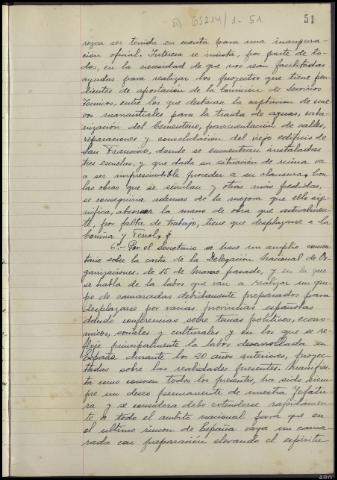 51
rezca ser tenida en cuenta para una inaugura-
ción oficial. Interesa se insista, por parte de to-
dos, en la necesidad de que nos sean facilitadas
ayudas para realizar los proyectos que tiene pen-
dientes de aportación de la Comisión de Servicios
Técnicos, entre los que destacan la captación de nue-
vos manantiales para la traida de aguas, urba-
nización del Cementerio, pavimentación de calles,
reparaciones y consolidación del viejo edificio de
San Francisco, donde se encuentran instaladas
tres escuelas, y que dada su situación de ruina va
a ser imprescindible proceder a su clausura. Con
las obras que se señalan y otras más pedidas,
se conseguiria además de la mejora que ello sig-
nifica, absorver la mano de obra que actualmen-
te, por falta de trabajo, tiene que desplazarse a la
Coruña y Ferrol.
6.- Por el Secretario se hace un amplio comen-
tario sobre la carta de la Delegación Nacional de Or-
ganizaciones, de 15 de Marzo pasado, y en la que
se habla de la labor que van a realizar un gru-
po de camaradas debidamente preparados para
desplazarse por varias provincias españolas
dando conferencias sobre temas politicos, econo-
micos, sociales y culturales y en los que se re-
fleje principalmente la labor desarrollada en
España durante los 20 años anteriores, proyec-
tadas sobre las realidades presentes. Manifies-
ta como conocen todos los presentes, ha sido siem-
pre un deseo permanente de nuestra Jefatu-
ra y se considera debe extenderse rapidamen-
te a todo el ambito nacional para que en
el ultimo rincon de España haya un cama-
rada con preparación elevando el espiritu